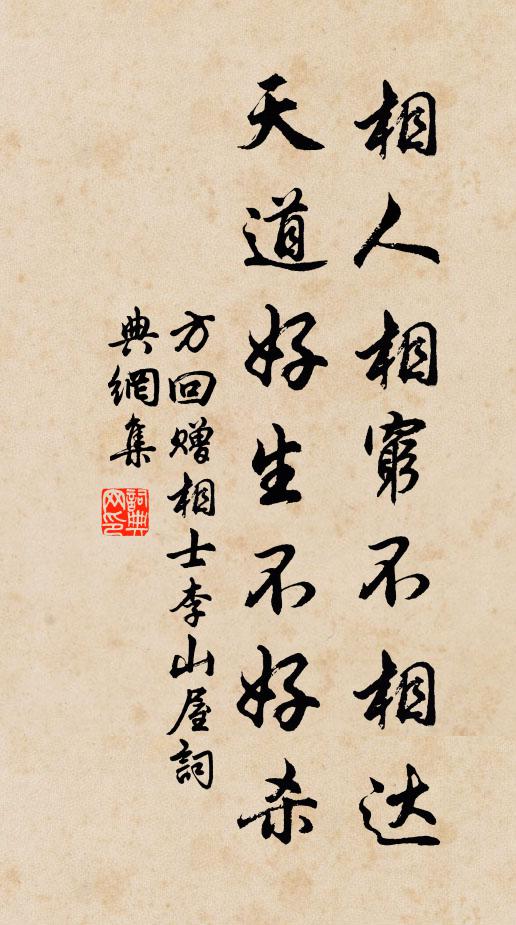 相人相窮不相达
天道好生不好杀
方回赠相士李山屋詞
典網集
詞典
网印